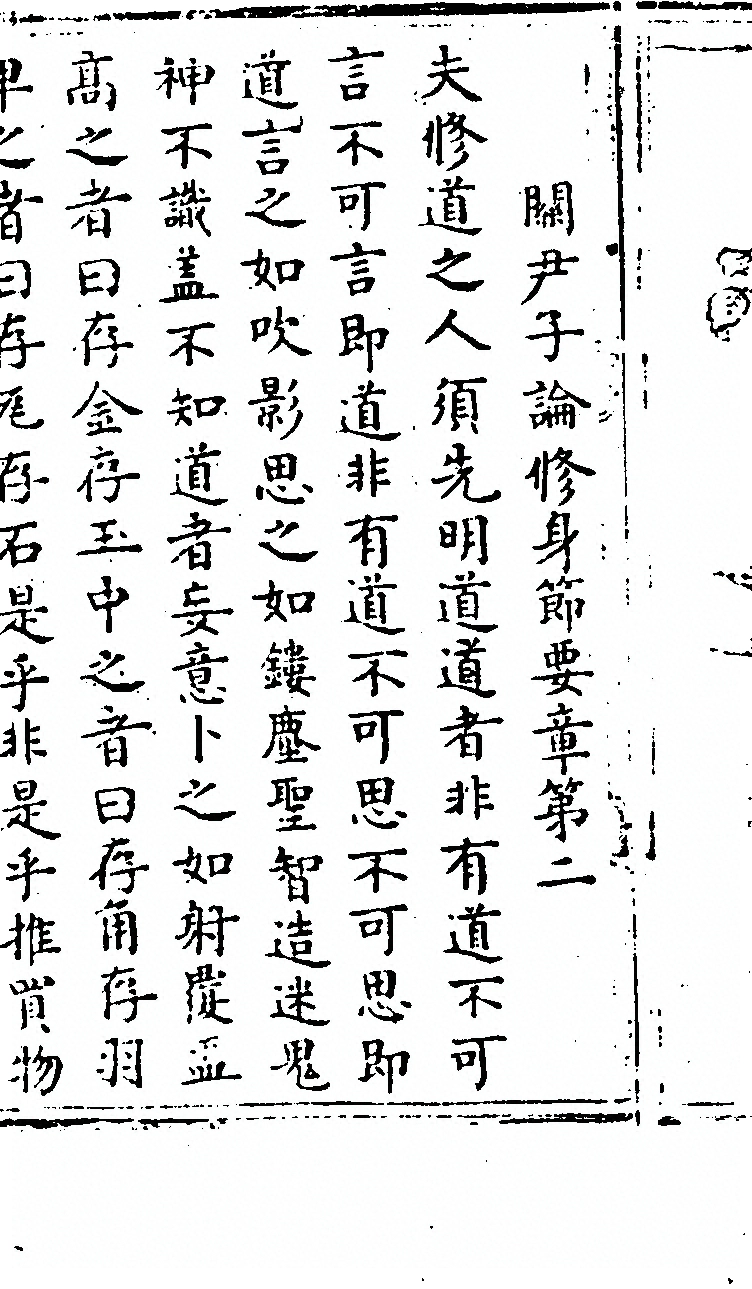 關尹子論修身節要章第二
夫修道之人須先明道道者非有道不可
言不可言即道非有道不可思不可思即
道言之如吹影思之如鏤塵聖智造迷鬼
神不識盖不知道者妄意卜之如射覆盂
高之者曰存金存玉中之者曰存角存羽
卑之者曰存瓦存石是乎非是乎推買物